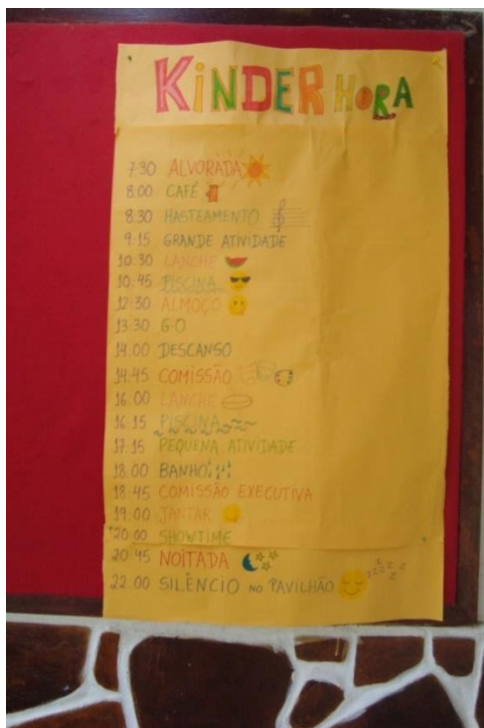 KiNDER HORA
7:30 ALVORADA
8:00 CAFÉ
8:30 HASTEAMENTO
9:15 GRANDE ATIVIDADE
10:30 LANCHE
10:45 PISCINA
12:30 ALMOÇO
13:30 G.O
14:00 DESCANSO
14:45 COMISSÃO
16:00 LANCHE
16:15 PISCINA
17:15 PEQUENA ATIVIDADE
18:00 BANHO
18:45 COMISSÃO EXECUTIVA
19:00 JANTAR
20:00 SHOWTIME
20:45 NOITADA
22:00 SILÊNCIO NO PAVILHÃO zzzzz